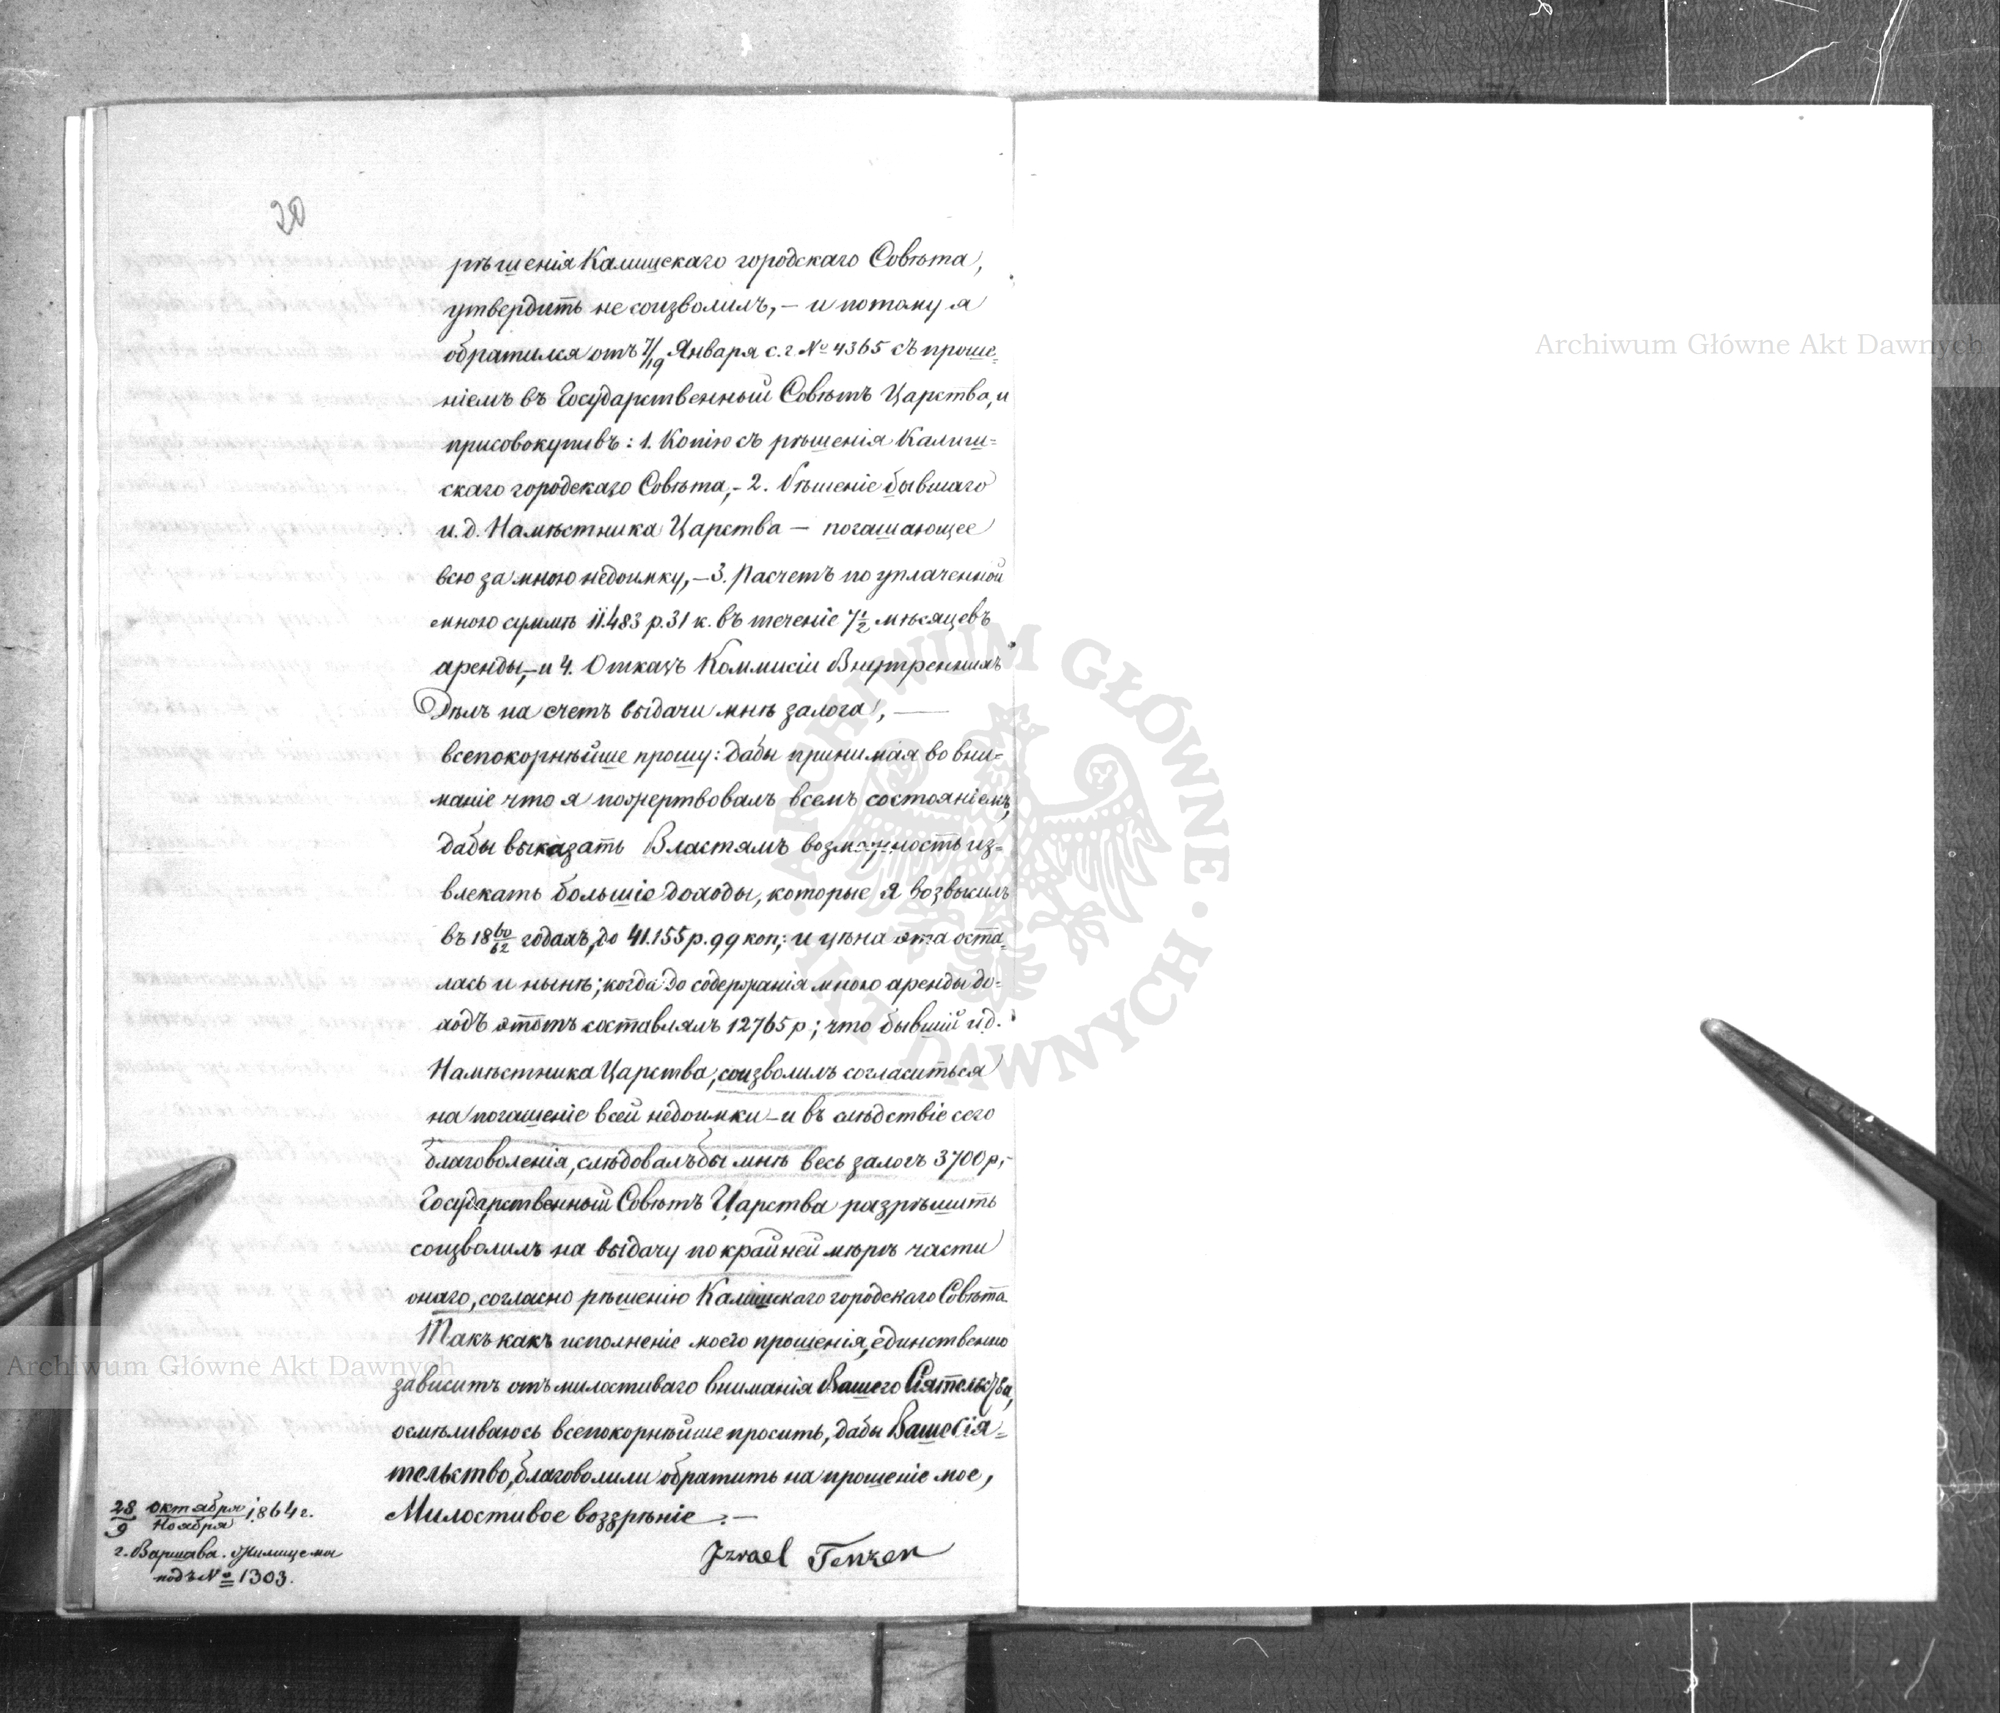 20
рѣшенія Калишскаго городскаго Совѣта,
утвердить не соизволилъ, – и потому я
обратился отъ 7/19 Января с. г. № 4365 съ проше=
ніемъ въ Государственный Совѣтъ Царства, и
присовокупивъ: 1. Копію съ рѣшенія Калиш=
скаго городскаго Совѣта, – 2. Рѣшеніе бывшаго
и. д. Намѣстника Царства — погашающее
всю за мною недоимку, – 3. Расчетъ по уплаченной
мною суммѣ 11.483 р. 31 к. въ теченіе 7½ мѣсяцевъ
аренды, – и 4. Отказъ Коммисіи Внутреннихъ
Дѣлъ на счетъ выдачи мнѣ залога, —
всепокорнѣйше прошу: дабы принимая во вни=
маніе что я пожертвовалъ всемъ состояніемъ,
дабы выказать Властямъ возможность из=
влекать большіе доходы, которые я возвысилъ
въ 18 60/62 годахъ, до 41.155 р. 99 коп; и цѣна эта оста=
лась и нынѣ; когда до содержанія мною аренды до=
ходъ этотъ составлялъ 12765 р; что бывшій и. д.
Намѣстника Царства, соизволилъ согласиться
на погашеніе всей недоимки – и въ слѣдствіе сего
благоволенія, слѣдовалъ бы мнѣ весь залогъ 3700 р, –
Государственный Совѣтъ Царства разрѣшить
соизволилъ на выдачу по крайней мѣрѣ части
онаго, согласно рѣшенію Калишскаго городскаго Совѣта.
Такъ какъ исполненіе моего прошенія, единственно
зависитъ отъ милостиваго вниманія Вашего Сіятельства,
осмѣливаюсь всепокорнѣйше просить, дабы Ваше Сія=
тельство, благоволили обратить на прошеніе мое,
Милостивое воззрѣніе. —
Izrael Tenzer
28/9 Октября/Ноября 1864 г.
г. Варшава. Жилище мы
подъ № 1303.
Archiwum Główne Akt Dawnych
Archiwum Główne Akt Dawnych
ARCHIWUM GŁÓWNE
AKT DAWNYCH